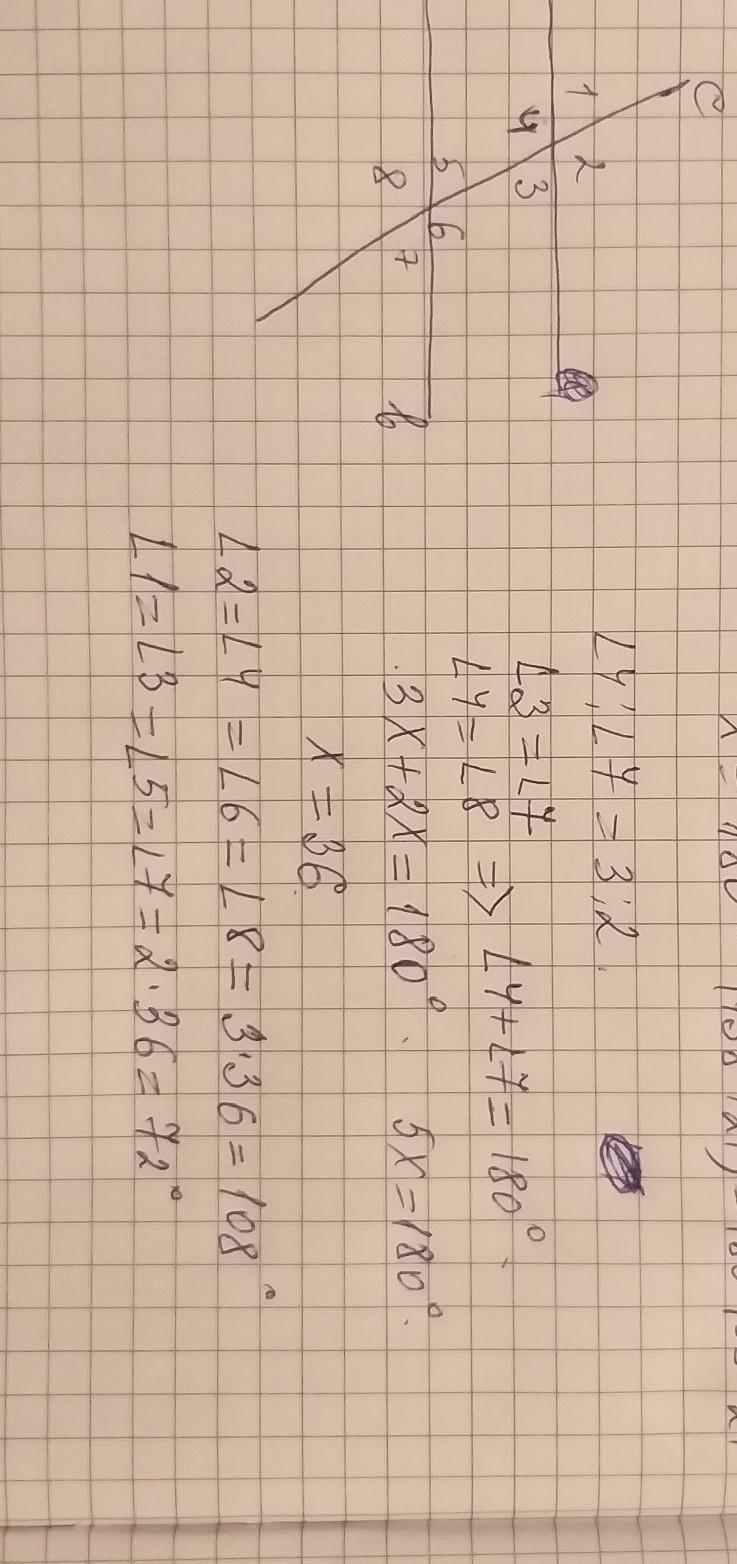 C
1
2
4
3
5
6
8
7
b
∠4:∠7 = 3:2.
∠3 = ∠7
∠4 = ∠8 => ∠4 + ∠7 = 180°.
3x + 2x = 180°. 5x = 180°.
x = 36°
∠2 = ∠4 = ∠6 = ∠8 = 3·36 = 108°
∠1 = ∠3 = ∠5 = ∠7 = 2·36 = 72°